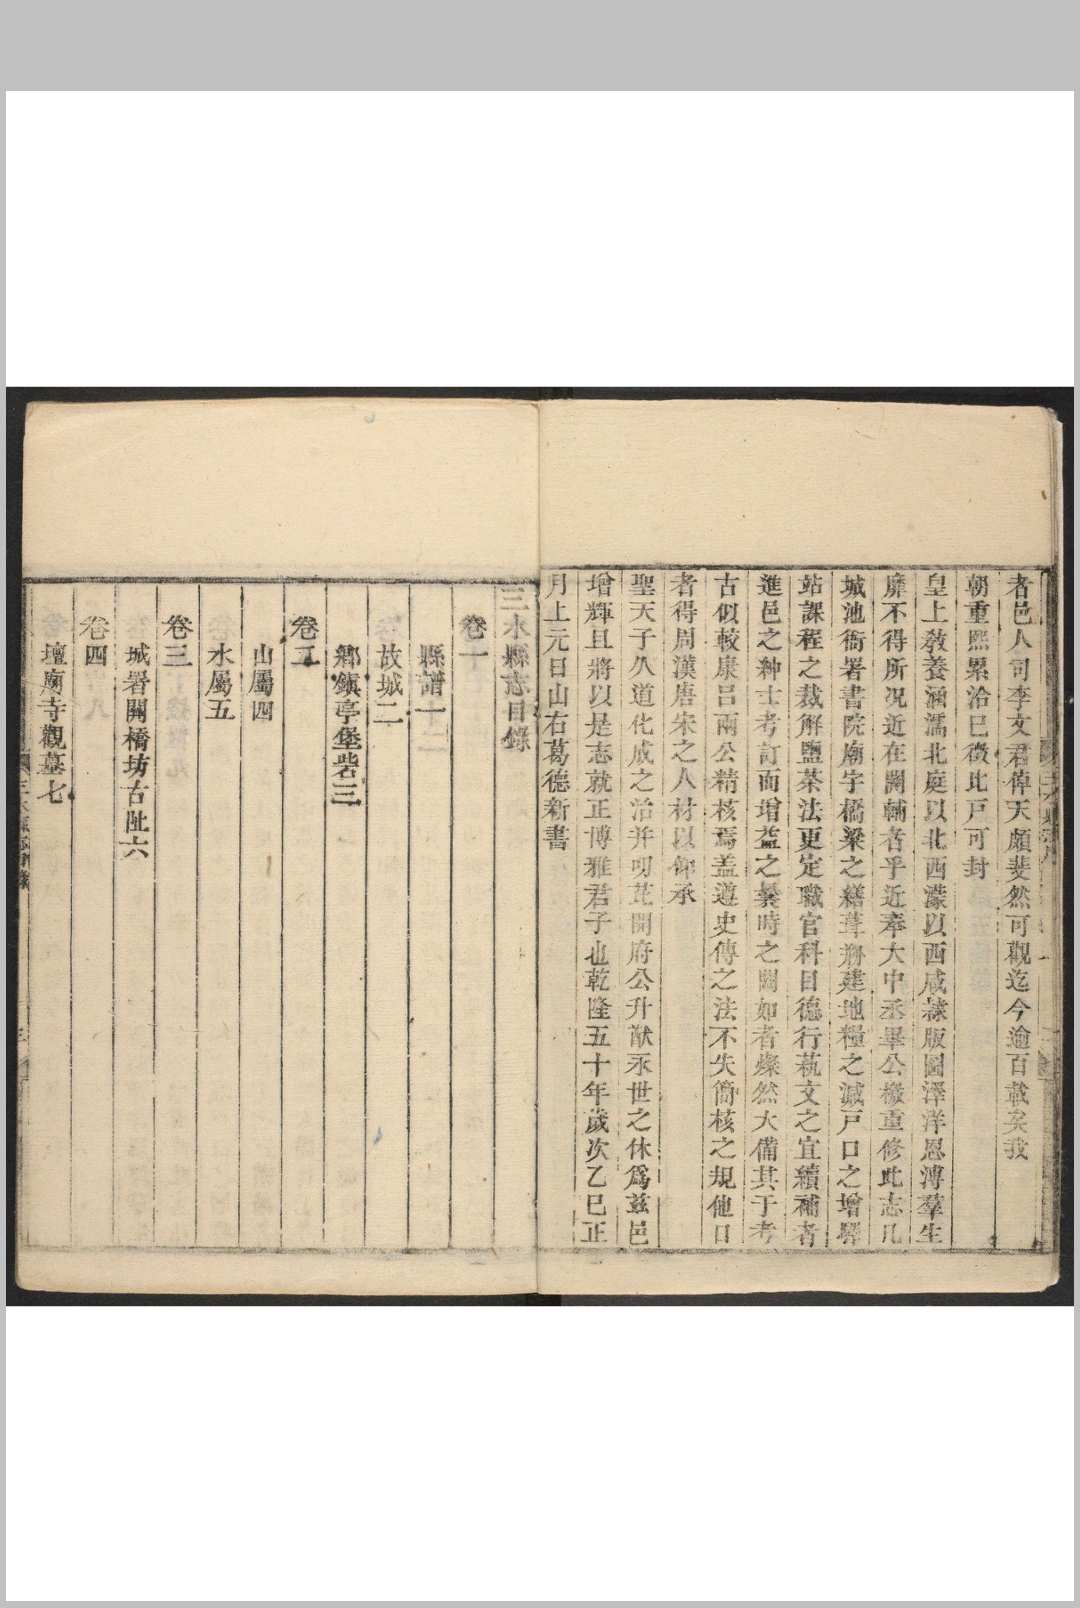 者邑人司李文君倬天頗斐然可觀迄今逾百載矣我
朝重熙累洽已徵比戸可封
皇上教養涵濡北庭以北西濛以西咸隸版圖澤洋恩溥羣生
靡不得所况近在關輔者乎近奉大中丞畢公檄重修此志凡
城池衙署書院廟宇橋梁之繕葺剏建地糧之減戸口之增驛
站課程之裁解鹽茶法更定職官科目德行蓺文之宜續補者
進邑之紳士考訂而增益之曩時之闕如者燦然大備其于考
古似較康呂兩公精核焉盖遵史傳之法不失簡核之規他日
者得周漢唐宋之人材以仰承
聖天子久道化成之治并叨芘開府公升猷永世之休爲茲邑
增輝且將以是志就正博雅君子也乾隆五十年歲次乙巳正
月上元日山右葛德新書
三水縣志目錄
卷一
縣譜一
故城二
鄉鎮亭堡砦三
卷二
山屬四
水屬五
卷三
城署關橋坊古阯六
卷四
壇廟寺觀墓七